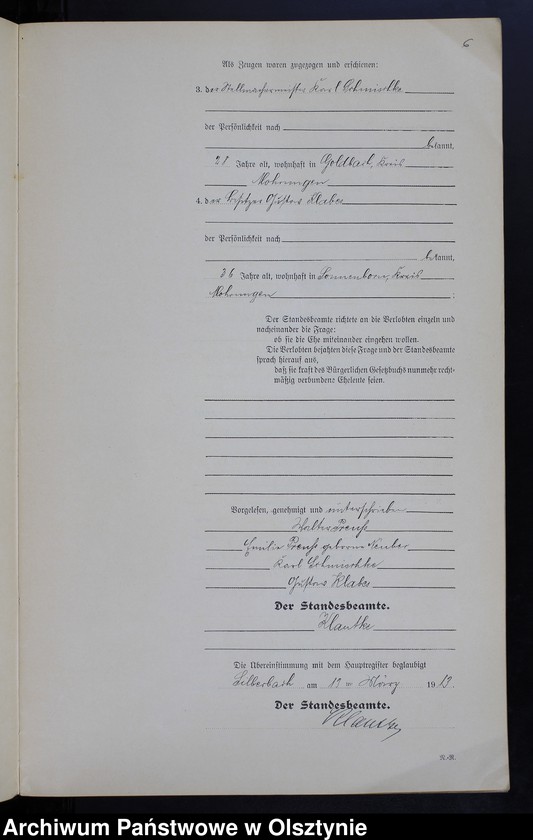 6
Als Zeugen waren zugezogen und erschienen:
3. der Stellmachermeister Karl Schmischke
der Persönlichkeit nach
bekannt,
21 Jahre alt, wohnhaft in Goldbach, Kreis
Mohrungen
4. der Besitzer Gustav Klabes
der Persönlichkeit nach
bekannt,
26 Jahre alt, wohnhaft in Sonnenborn, Kreis
Mohrungen :
Der Standesbeamte richtete an die Verlobten einzeln und
nacheinander die Frage:
ob sie die Ehe miteinander eingehen wollen.
Die Verlobten bejahten diese Frage und der Standesbeamte
sprach hierauf aus,
daß sie kraft des Bürgerlichen Gesetzbuchs nunmehr recht-
mäßig verbundene Eheleute seien.
Vorgelesen, genehmigt und unterschrieben
Walter Preuß
Emilie Preuß geborene Neuber
Karl Schmischke
Gustav Klabes
Der Standesbeamte.
Klautke
Die Übereinstimmung mit dem Hauptregister beglaubigt
Silberbach am 19 = März 1919.
Der Standesbeamte.
N.-R.
Archiwum Państwowe w Olsztynie